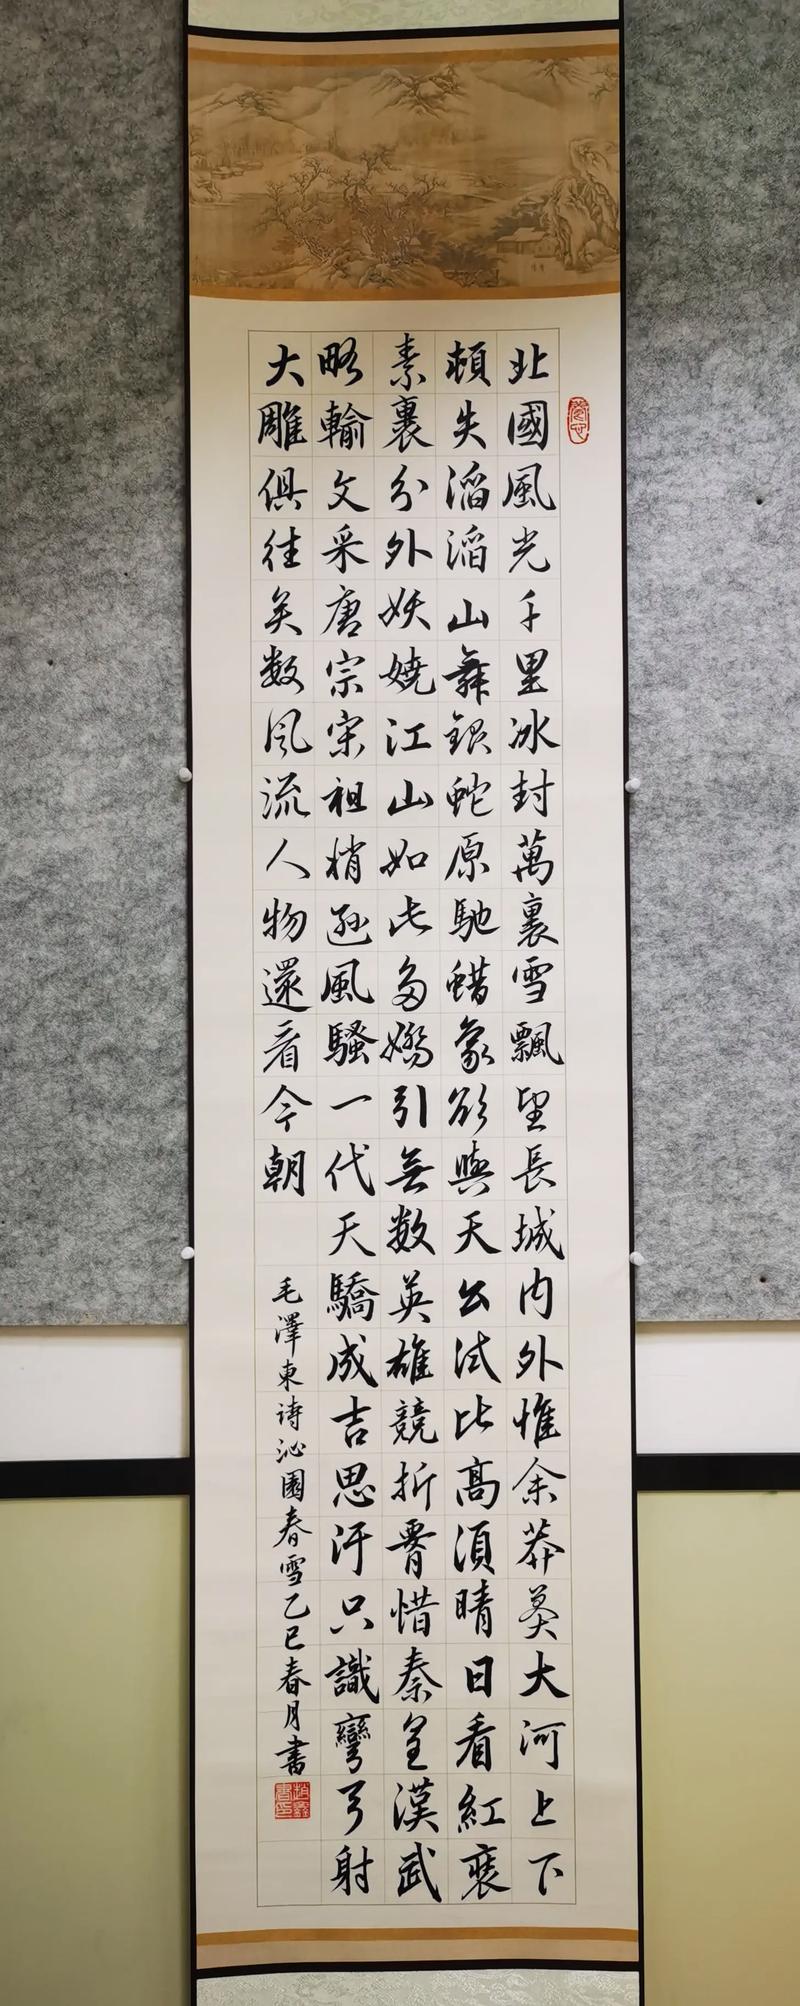 北國風光千里冰封萬裏雪飄望長城内外惟余莽莽大河上下
頓失滔滔山舞銀蛇原馳蜡象欲與天公试比高須晴日看紅裝
素裹分外妖嬈江山如此多嬌引無数英雄競折腰惜秦皇漢武
略輸文采唐宗宋祖稍遜風騷一代天驕成吉思汗只識彎弓射
大雕俱往矣数風流人物還看今朝
毛澤東诗沁園春雪乙巳春月書
趙鑫書印